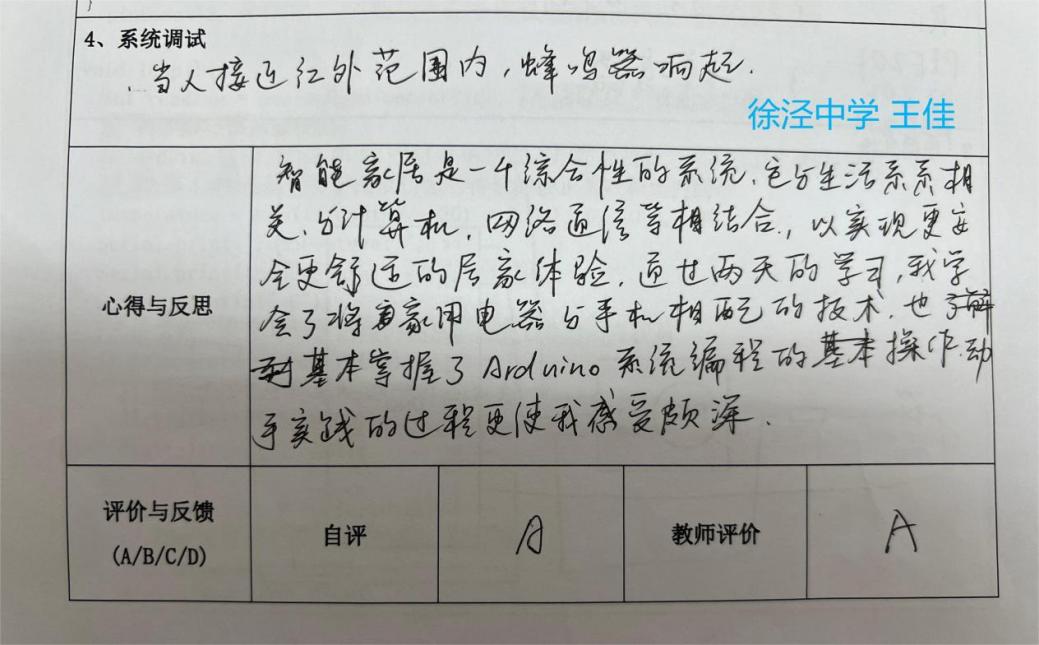 }
4、系统调试
当人接近红外范围内，蜂鸣器响起.
徐泾中学 王佳
智能家居是一个综合性的系统，它与生活系系相
关，与计算机，网络通信等相结合，以实现更安
全更舒适的居家体验，通过两天的学习，我学
心得与反思
会了将家用电器与手机相配的技术，也了解
基本掌握了Arduino系统编程的操作.动
手实践的过程更使我感受颇深.
评价与反馈
(A/B/C/D)
自评
A
教师评价
A